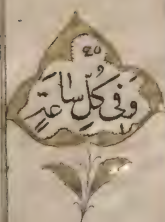 وَفِي كُلِّ سَاعَةٍ